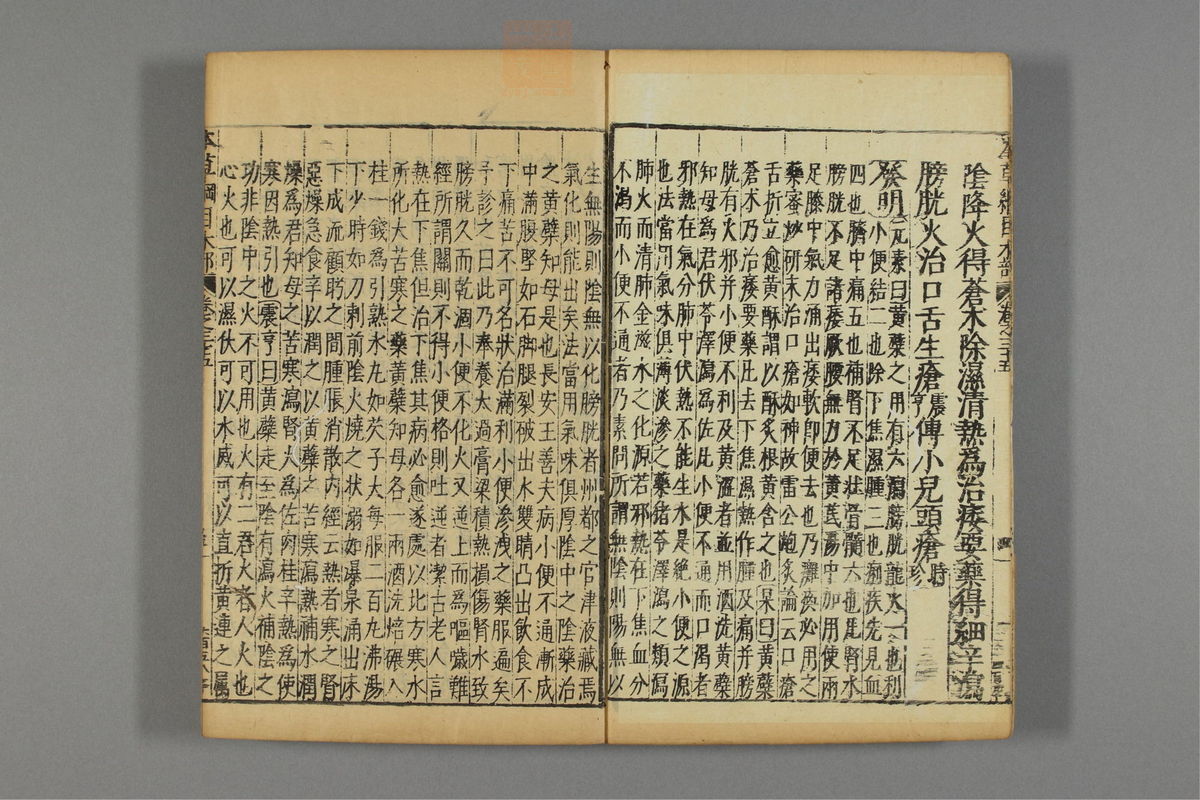 陰降火得蒼朮除濕清熱為治痿要藥得細辛瀉
膀胱火治口舌生瘡震亨傅小兒頭瘡時珍
發明元素曰黃蘗之用有六瀉膀胱龍火一也利
小便結二也除下焦濕腫三也痢疾先見血
四也臍中痛五也補腎不足壯骨髓六也凡腎水
膀胱不足諸痿厥腰無力於黃芪湯中加用使兩
足膝中氣力涌出痿軟即便去也乃癱瘓必用之
藥蜜炒研末治口瘡如神故雷公炮炙論云口瘡
舌折立愈黃酥謂以酥炙根黃含之也杲曰黃蘗
蒼朮乃治痿要藥凡去下焦濕熱作腫及痛并膀
胱有火邪并小便不利及黃澀者並用酒洗黃蘗
知母為君茯苓澤瀉為佐凡小便不通而口渴者
邪熱在氣分肺中伏熱不能生水是絕小便之源
也法當用氣味俱薄淡滲之藥猪苓澤瀉之類瀉
肺火而清肺金滋水之化源若邪熱在下焦血分
不渴而小便不通者乃素問所謂無陰則陽無以
生無陽則陰無以化膀胱者州都之官津液藏焉
氣化則能出矣法當用氣味俱厚陰中之陰藥治
之黃蘗知母是也長安王善夫病小便不通漸成
中滿腹堅如石脚腿裂破出水雙睛凸出飲食不
下痛苦不可名狀治滿利小便滲洩之藥服遍矣
予診之曰此乃奉養太過膏粱積熱損傷腎水致
膀胱久而乾涸小便不化火又逆上而為嘔噦難
經所謂關則不得小便格則吐逆者潔古老人言
熱在下焦但治下焦其病必愈遂處以北方寒水
所化大苦寒之藥黃蘗知母各一兩酒洗焙碾入
桂一錢為引熟水丸如芡子大每服二百丸沸湯
下少時如刀刺前陰火燒之狀溺如瀑泉涌出床
下成流顧盻之間腫脹消散內經云熱者寒之腎
惡燥急食辛以潤之以黃蘗之苦寒瀉熱補水潤
燥為君知母之苦寒瀉腎火為佐肉桂辛熱為使
寒因熱引也震亨曰黃蘗走至陰有瀉火補陰之
功非陰中之火不可用也火有二君火者人火也
心火也可以濕伏可以水滅可以直折黃連之屬
本草綱目木部 卷之三十五